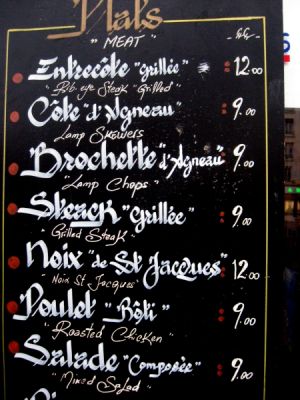 Plats
" MEAT "
Entrecôte "Grillée" : 12.00
" Rib-eye Steak "Grilled"
Côte "d'Agneau : 9.00
Lamp Skewers
Brochette "d'Agneau" : 9.00
"Lamp Chops"
Steack "Grillée" : 9.00
"Grilled Steak"
Noix "de St Jacques" 12.00
"Noix St Jacques"
Poulet "Rôti" : 9.00
"Roasted Chicken"
Salade "Composée" : 9.00
"Mixed Salad"